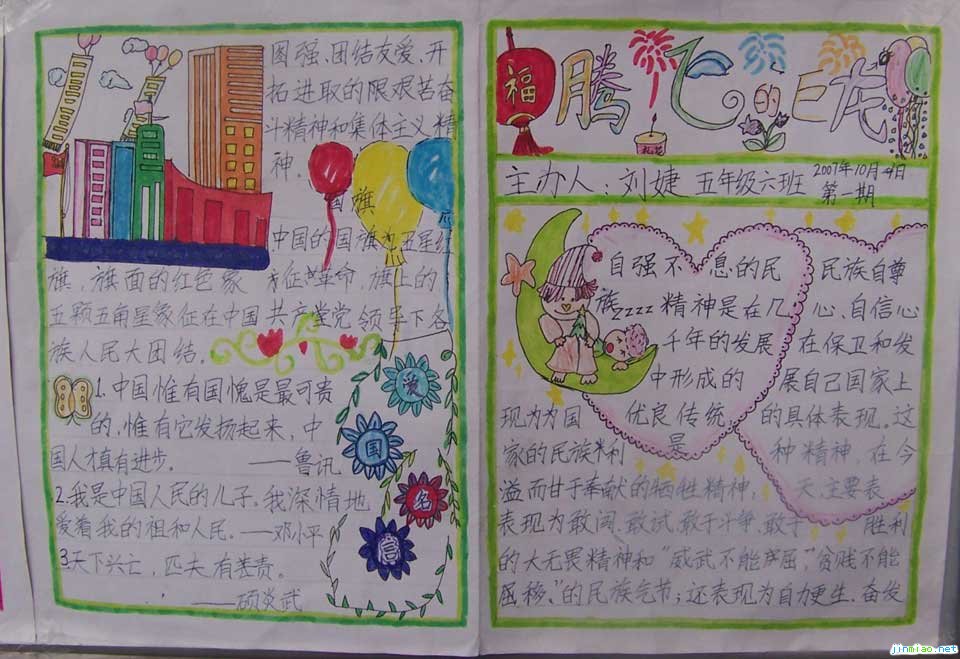 图强、团结友爱、开
拓进取的限艰苦奋
斗精神和集体主义精
神。
国旗
中国的国旗为五星红
旗，旗面的红色象征革命，旗上的
五颗五角星象征在中国共产党党领导下各
族人民大团结。
1.中国惟有国愧是最可贵
的，惟有它发扬起来，中
国人才真有进步。——鲁讯
2.我是中国人民的儿子。我深情地
爱着我的祖和人民。—邓小平
3天下兴亡，匹夫有差责。
——顾炎武
爱
国
名
言
福
腾飞的巨龙
礼花
主办人：刘婕 五年级六班 2007年10月4日
第一期
自强不息的民 民族自尊
族zzzz精神是在几 心、自信心
千年的发展 在保卫和发
中形成的 展自己国家上
现为为国 优良传统， 的具体表现。这
家的民族利 是 种精神，在今
溢而甘于奉献的牺牲精神， 天主要表
表现为敢闯、敢试、敢于斗争、敢于 胜利
的大无畏精神和“威武不能屈，”贫贱不能
屈移，”的民族气节；还表现为自力更生、奋发
jinmiao.net